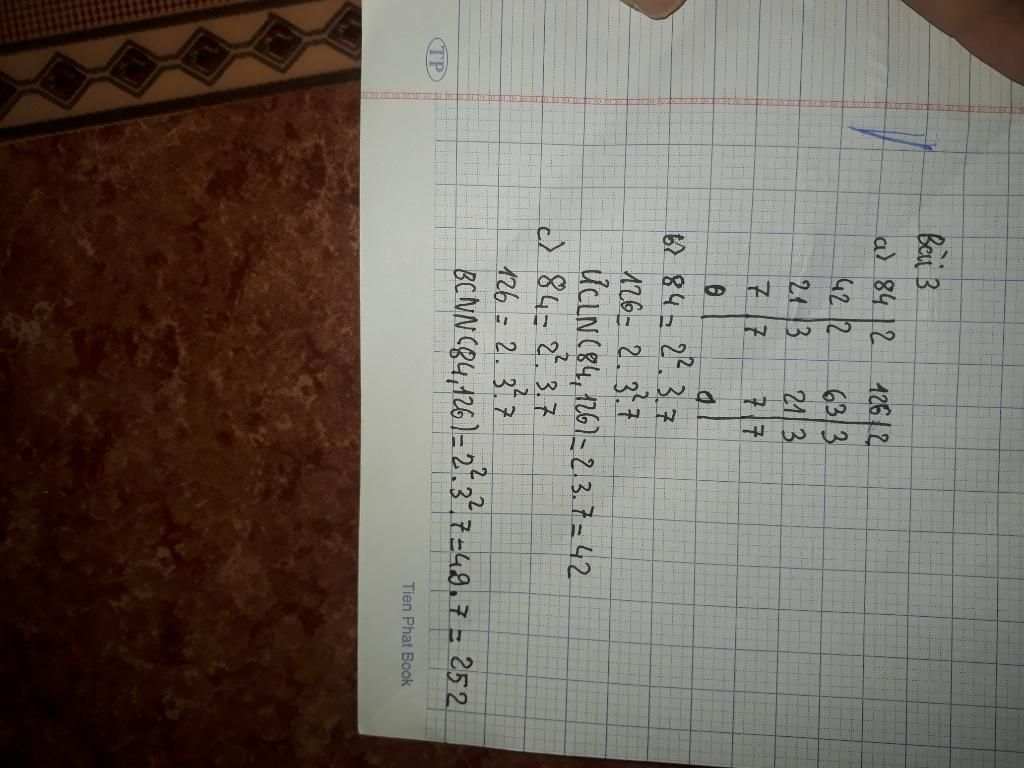 Bài 3
a) 84 | 2 126 | 2
42 | 2 63 | 3
21 | 3 21 | 3
7 | 7 7 | 7
0 1
b) 84 = 2². 3.7
126 = 2 . 3².7
ƯCLN(84,126) = 2 3.7 = 42
c) 84 = 2². 3.7
126 = 2. 3².7
BCNN(84,126) = 2².3².7 = 49.7 = 252
TP
Tien Phat Book